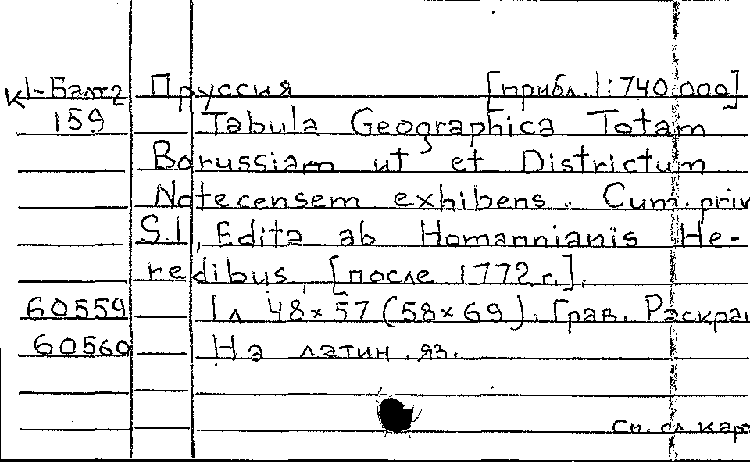 К1-Балт2 Пруссия [прибл. 1:740.000]
159 Tabula Geographica Totam
Borussiam ut et Districtum
Notecensem exhibens. Cum. priv
S.l., Edita ab Homannianis He-
redibus, [после 1772 г.].
60559 1 л 48×57 (58×69). Грав. Раскра
60560 На латин. яз.
См. сл. кар